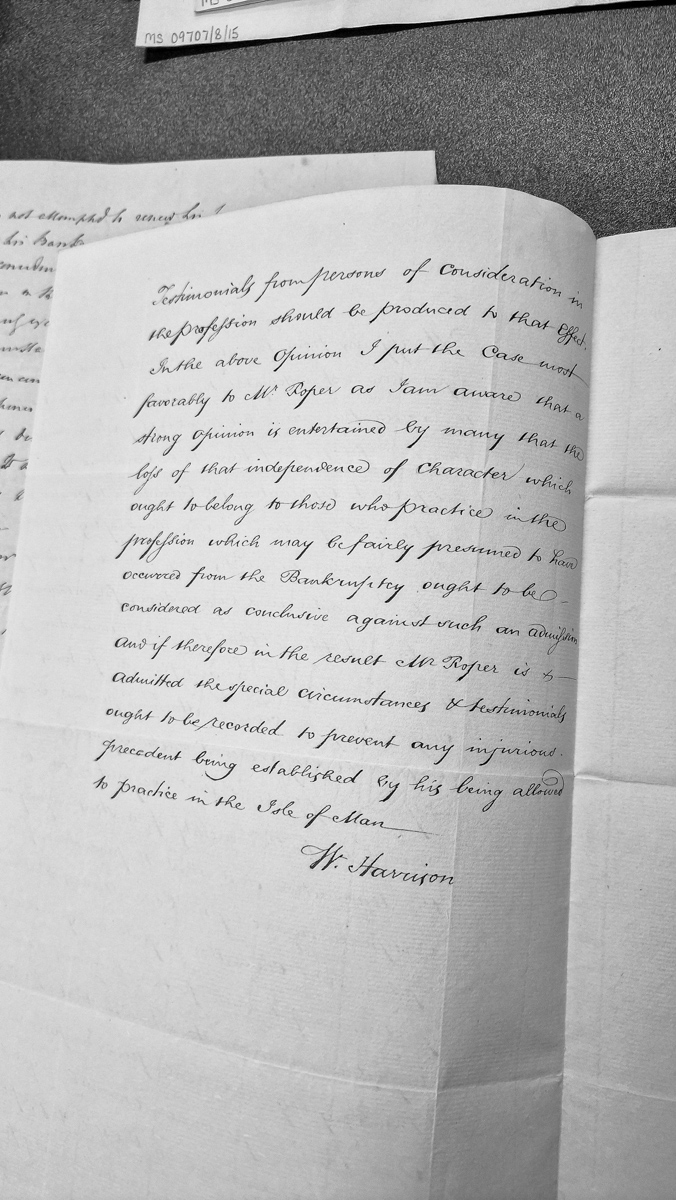 MS 09707/8/15
not attempted to renew his
his Bank
Testimonials from persons of Consideration in
the profession should be produced to that effect.
In the above Opinion I put the Case most
favorably to Mr. Roper as I am aware that a
strong opinion is entertained by many that the
loss of that independence of Character which
ought to belong to those who practice in the
profession which may be fairly presumed to have
occurred from the Bankruptcy ought to be –
considered as conclusive against such an admission
and if therefore in the result Mr. Roper is
admitted the special circumstances & testimonials
ought to be recorded to prevent any injurious
precedent being established by his being allowed
to practice in the Isle of Man
W. Harrison